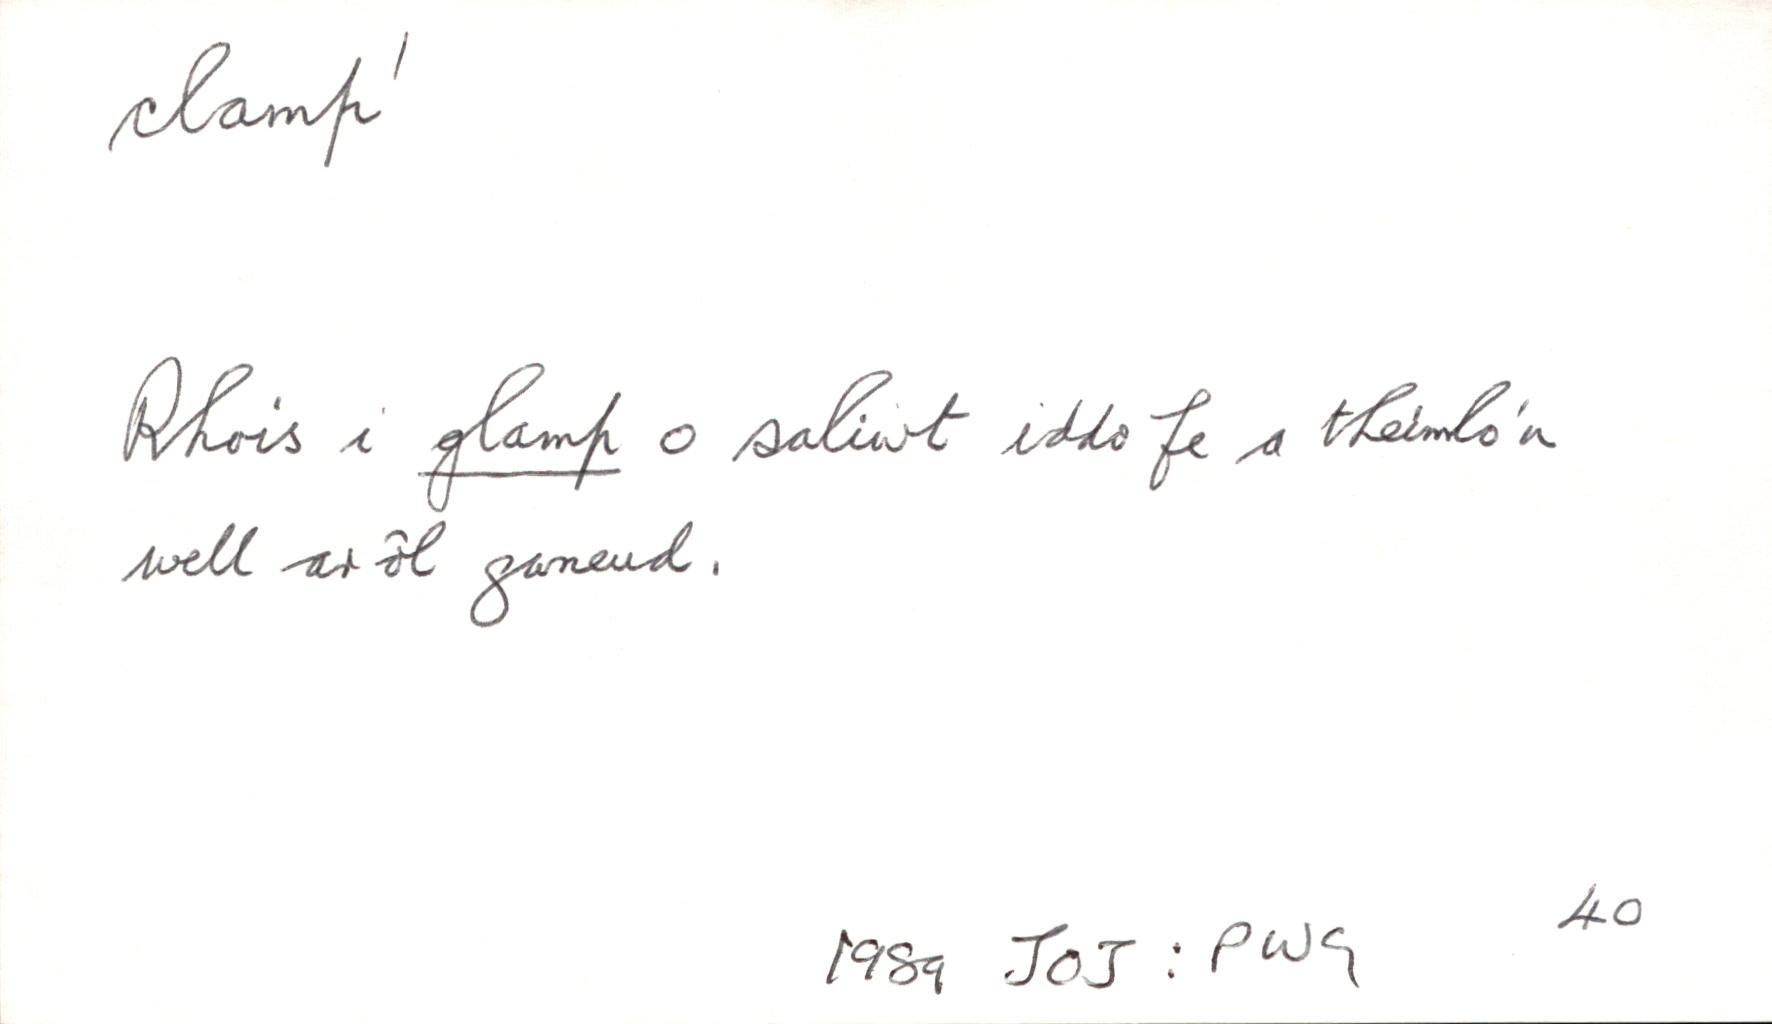 clamp¹
Rhois i glamp o saliwt iddo fe a theimlo'n
well ar ôl gwneud.
40
1989 JOJ : PWG